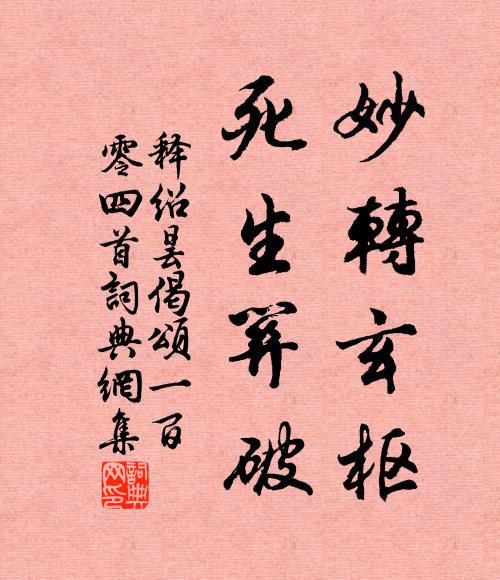 妙轉玄枢
死生破
释绍昙偈頌一百
零四首詞典網集
詞典
网印